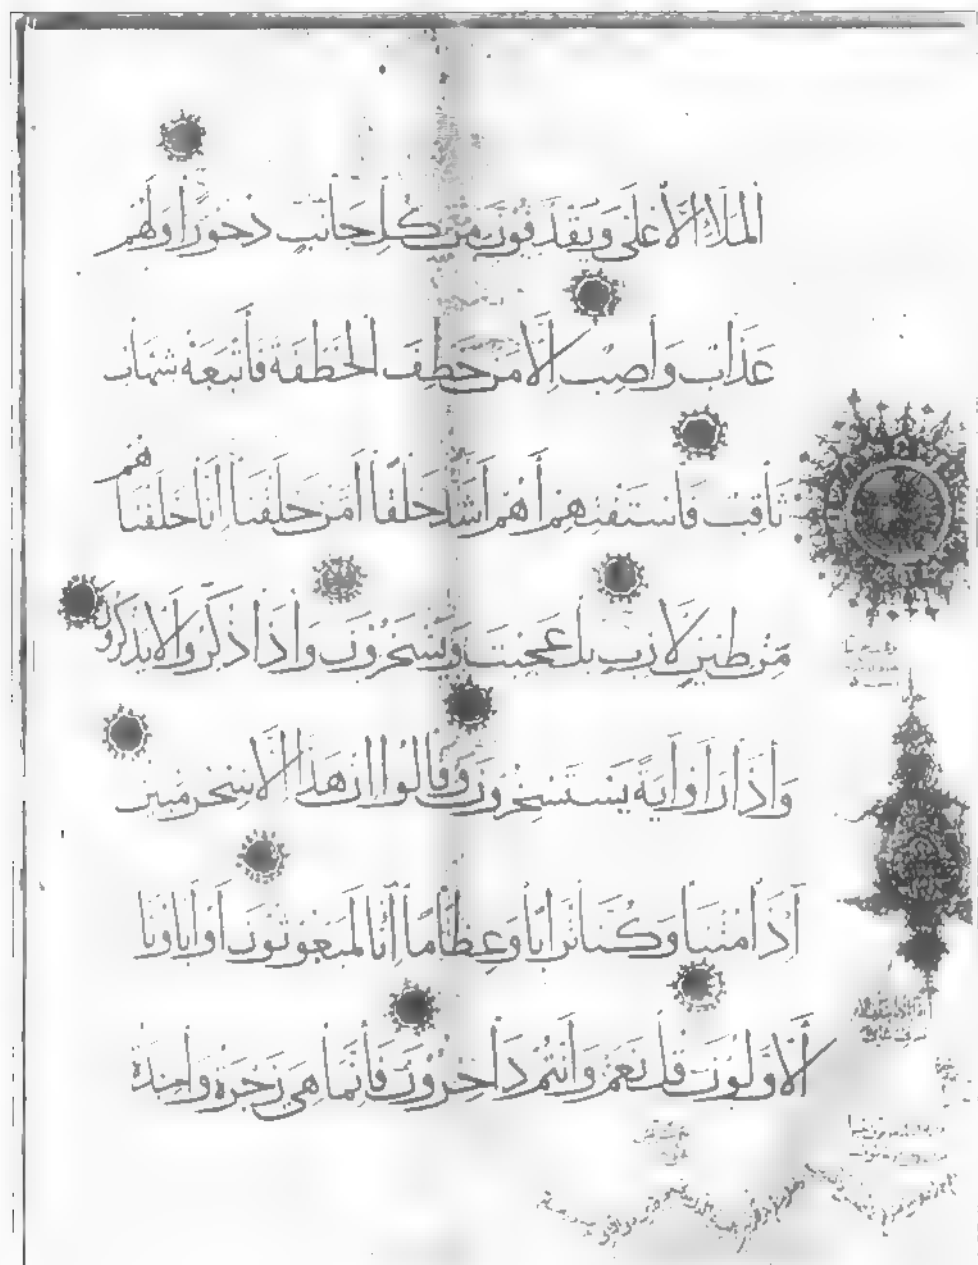 الملإ الأعلى ويقذفون من كل جانب دحورا ولهم
عذاب واصب إلا من خطف الخطفة فأتبعه شهاب
ثاقب فاستفتهم أهم أشد خلقا أمن خلقنا إنا خلقناهم
من طين لازب بل عجبت ويسخرون وإذا ذكروا لا يذكرون
وإذا رأوا آية يستسخرون وقالوا إن هذا إلا سحر مبين
أإذا متنا وكنا ترابا وعظاما أإنا لمبعوثون أوآباؤنا
الأولون قل نعم وأنتم داخرون فإنما هي زجرة واحدة